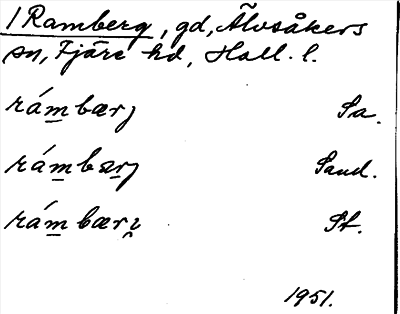 1 Ramberg, gd, Älvsåkers
sn, Fjäre hd, Hall. l.
rám̲bærj Sa.
rám̲bær̲j Sand.
rám̲bærı̯ St.
1951.